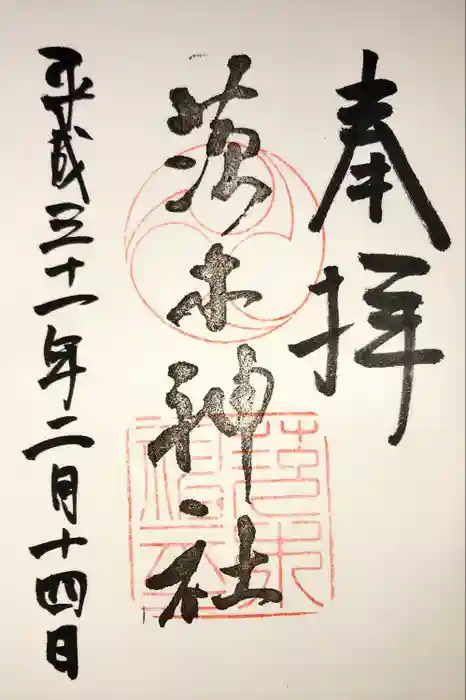 奉拝
茨木神社
平成三十一年二月十四日
茨木神社